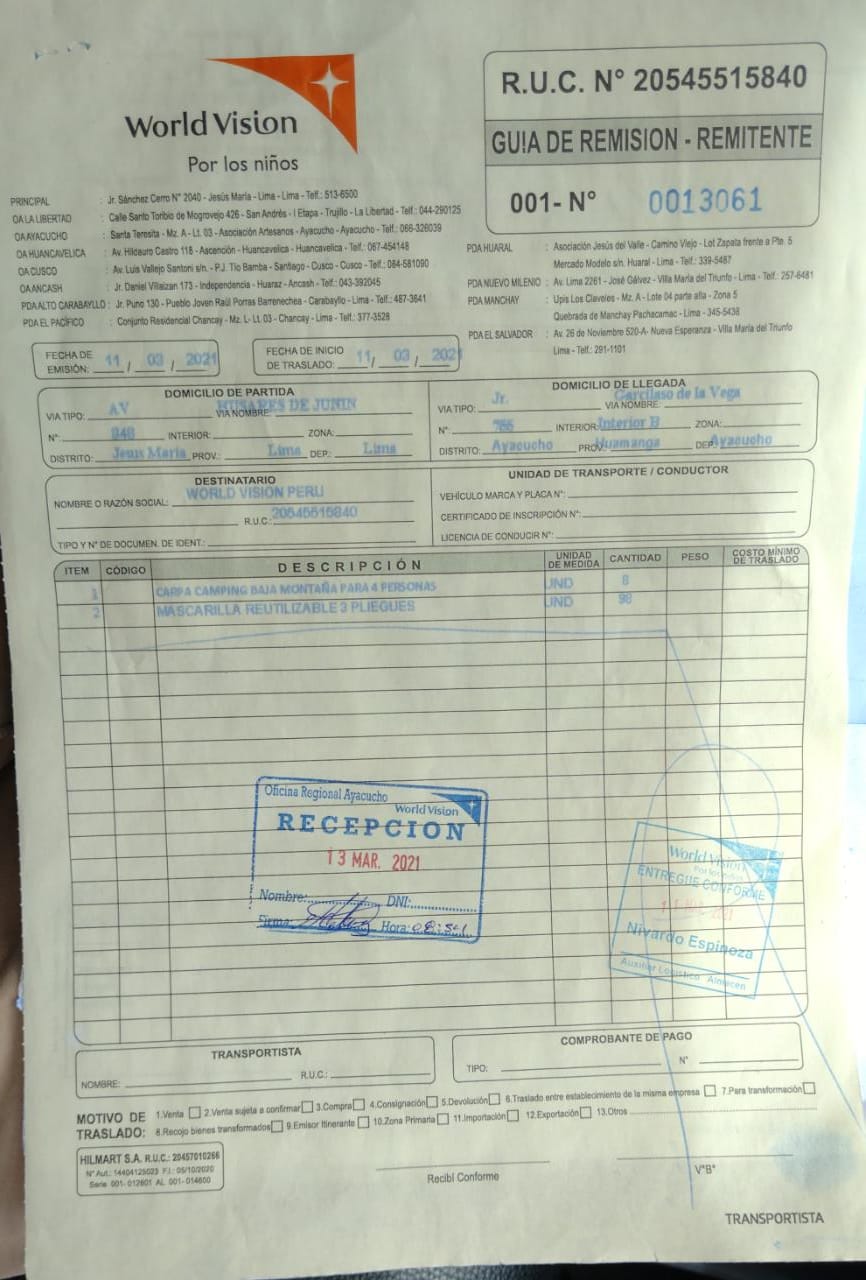 World Vision
Por los niños
R.U.C. N° 20545515840
GUIA DE REMISION - REMITENTE
001- N° 0013061
PRINCIPAL : Jr. Sánchez Cerro N° 2040 - Jesús María - Lima - Lima - Telf.: 513-6500
OA LA LIBERTAD : Calle Santo Toribio de Mogrovejo 426 - San Andrés - I Etapa - Trujillo - La Libertad - Telf.: 044-290125
OA AYACUCHO : Santa Teresita - Mz. A - Lt. 03 - Asociación Artesanos - Ayacucho - Ayacucho - Telf.: 066-326039
OA HUANCAVELICA : Av. Hildauro Castro 118 - Ascención - Huancavelica - Huancavelica - Telf.: 067-454148
OA CUSCO : Av. Luis Vallejo Santoni s/n. - P.J. Tio Bamba - Santiago - Cusco - Cusco - Telf.: 084-581090
OA ANCASH : Jr. Daniel Villaizan 173 - Independencia - Huaraz - Ancash - Telf.: 043-392045
PDA ALTO CARABAYLLO : Jr. Puno 130 - Pueblo Joven Raúl Porras Barrenechea - Carabayllo - Lima - Telf.: 487-3641
PDA EL PACÍFICO : Conjunto Residencial Chancay - Mz. L- Lt. 03 - Chancay - Lima - Telf.: 377-3528
PDA HUARAL : Asociación Jesús del Valle - Camino Viejo - Lot Zapata frente a Pte. 5
Mercado Modelo s/n. Huaral - Lima - Telf.: 339-5487
PDA NUEVO MILENIO : Av. Lima 2261 - José Gálvez - Villa María del Triunfo - Lima - Telf.: 257-6481
PDA MANCHAY : Upis Los Claveles - Mz. A - Lote 04 parte alta - Zona 5
Quebrada de Manchay Pachacamac - Lima - 345-5436
PDA EL SALVADOR : Av. 26 de Noviembre 520-A- Nueva Esperanza - Villa María del Triunfo
Lima - Telf.: 291-1101
FECHA DE EMISIÓN: 11 / 03 / 2021
FECHA DE INICIO DE TRASLADO: 11 / 03 / 2021
DOMICILIO DE PARTIDA
VIA TIPO: AV VIA NOMBRE: HUSARES DE JUNIN
N°: 948 INTERIOR: ZONA:
DISTRITO: Jesus Maria PROV.: Lima DEP.: Lima
DOMICILIO DE LLEGADA
VIA TIPO: Jr. VIA NOMBRE: Garcilaso de la Vega
N°: 786 INTERIOR: Interior B ZONA:
DISTRITO: Ayacucho PROV.: Huamanga DEP.: Ayacucho
DESTINATARIO
NOMBRE O RAZÓN SOCIAL: WORLD VISION PERU
R.U.C.: 20545515840
TIPO Y N° DE DOCUMEN. DE IDENT.:
UNIDAD DE TRANSPORTE / CONDUCTOR
VEHÍCULO MARCA Y PLACA N°:
CERTIFICADO DE INSCRIPCIÓN N°:
LICENCIA DE CONDUCIR N°:
ITEM CÓDIGO DESCRIPCIÓN UNIDAD DE MEDIDA CANTIDAD PESO COSTO MÍNIMO DE TRASLADO
1 CARPA CAMPING BAJA MONTAÑA PARA 4 PERSONAS UND 8
2 MASCARILLA REUTILIZABLE 3 PLIEGUES UND 98
Oficina Regional Ayacucho
World Vision
RECEPCION
13 MAR. 2021
Nombre: DNI:
Firma: Hora: 08:54
World Vision
Por los niños
ENTREGUE CONFORME
Nivardo Espinoza
Auxiliar Logístico Almacen
TRANSPORTISTA
NOMBRE: R.U.C.:
COMPROBANTE DE PAGO
TIPO: N°
MOTIVO DE TRASLADO:
1.Venta 2.Venta sujeta a confirmar 3.Compra 4.Consignación 5.Devolución 6.Traslado entre establecimiento de la misma empresa 7.Para transformación
8.Recojo bienes transformados 9.Emisor Itinerante 10.Zona Primaria 11.Importación 12.Exportación 13.Otros
HILMART S.A. R.U.C.: 20457010266
N° Aut.: 14404125023 F.I.: 05/10/2020
Serie 001- 012601 AL 001- 014600
Recibí Conforme
V°B°
TRANSPORTISTA